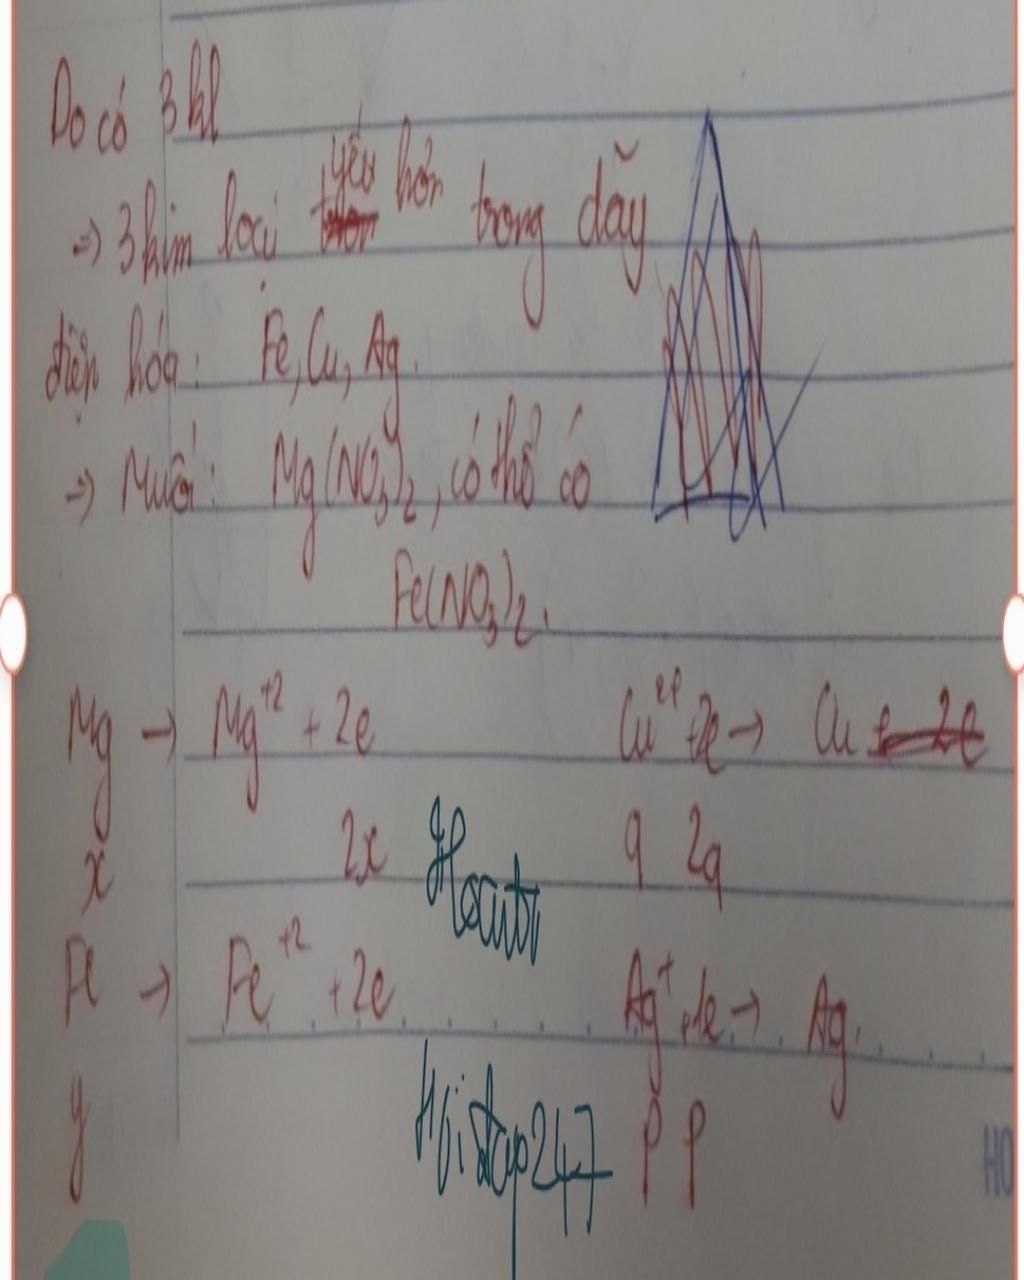 Do có 3 kl
=> 3 kim loại yếu hơn trong dãy
điện hóa: Fe, Cu, Ag.
=> Muối: Mg(NO3)2, có thể có
Fe(NO3)2.
Mg → Mg+2 + 2e Cu2+ + 2e → Cu
x 2x q 2q
Fe → Fe+2 + 2e Ag+ + 1e → Ag.
y p p
Hoidap247
HO